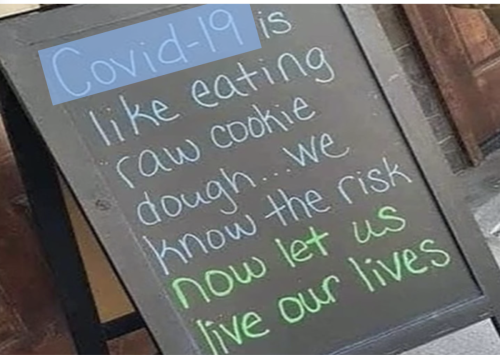 Covid-19 is
like eating
raw cookie
dough...we
know the risk
now let us
live our lives